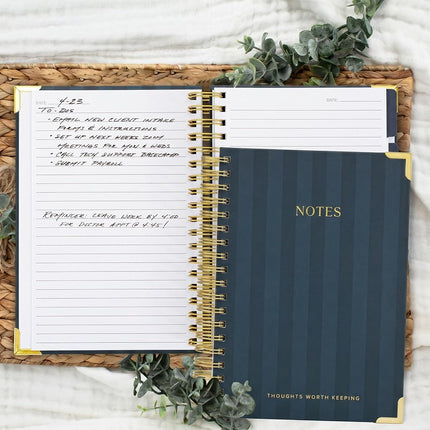 DATE 4-23
TO-DOS
• EMAIL NEW CLIENT INTAKE
FORMS & INSTRUCTIONS
• SET UP NEXT WEEKS ZOOM
MEETINGS FOR MON & WEDS
• CALL TECH SUPPORT BASECAMP
• SUBMIT PAYROLL
REMINDER: LEAVE WORK BY 4:00
FOR DOCTOR APPT @ 4:45!
DATE:
NOTES
THOUGHTS WORTH KEEPING